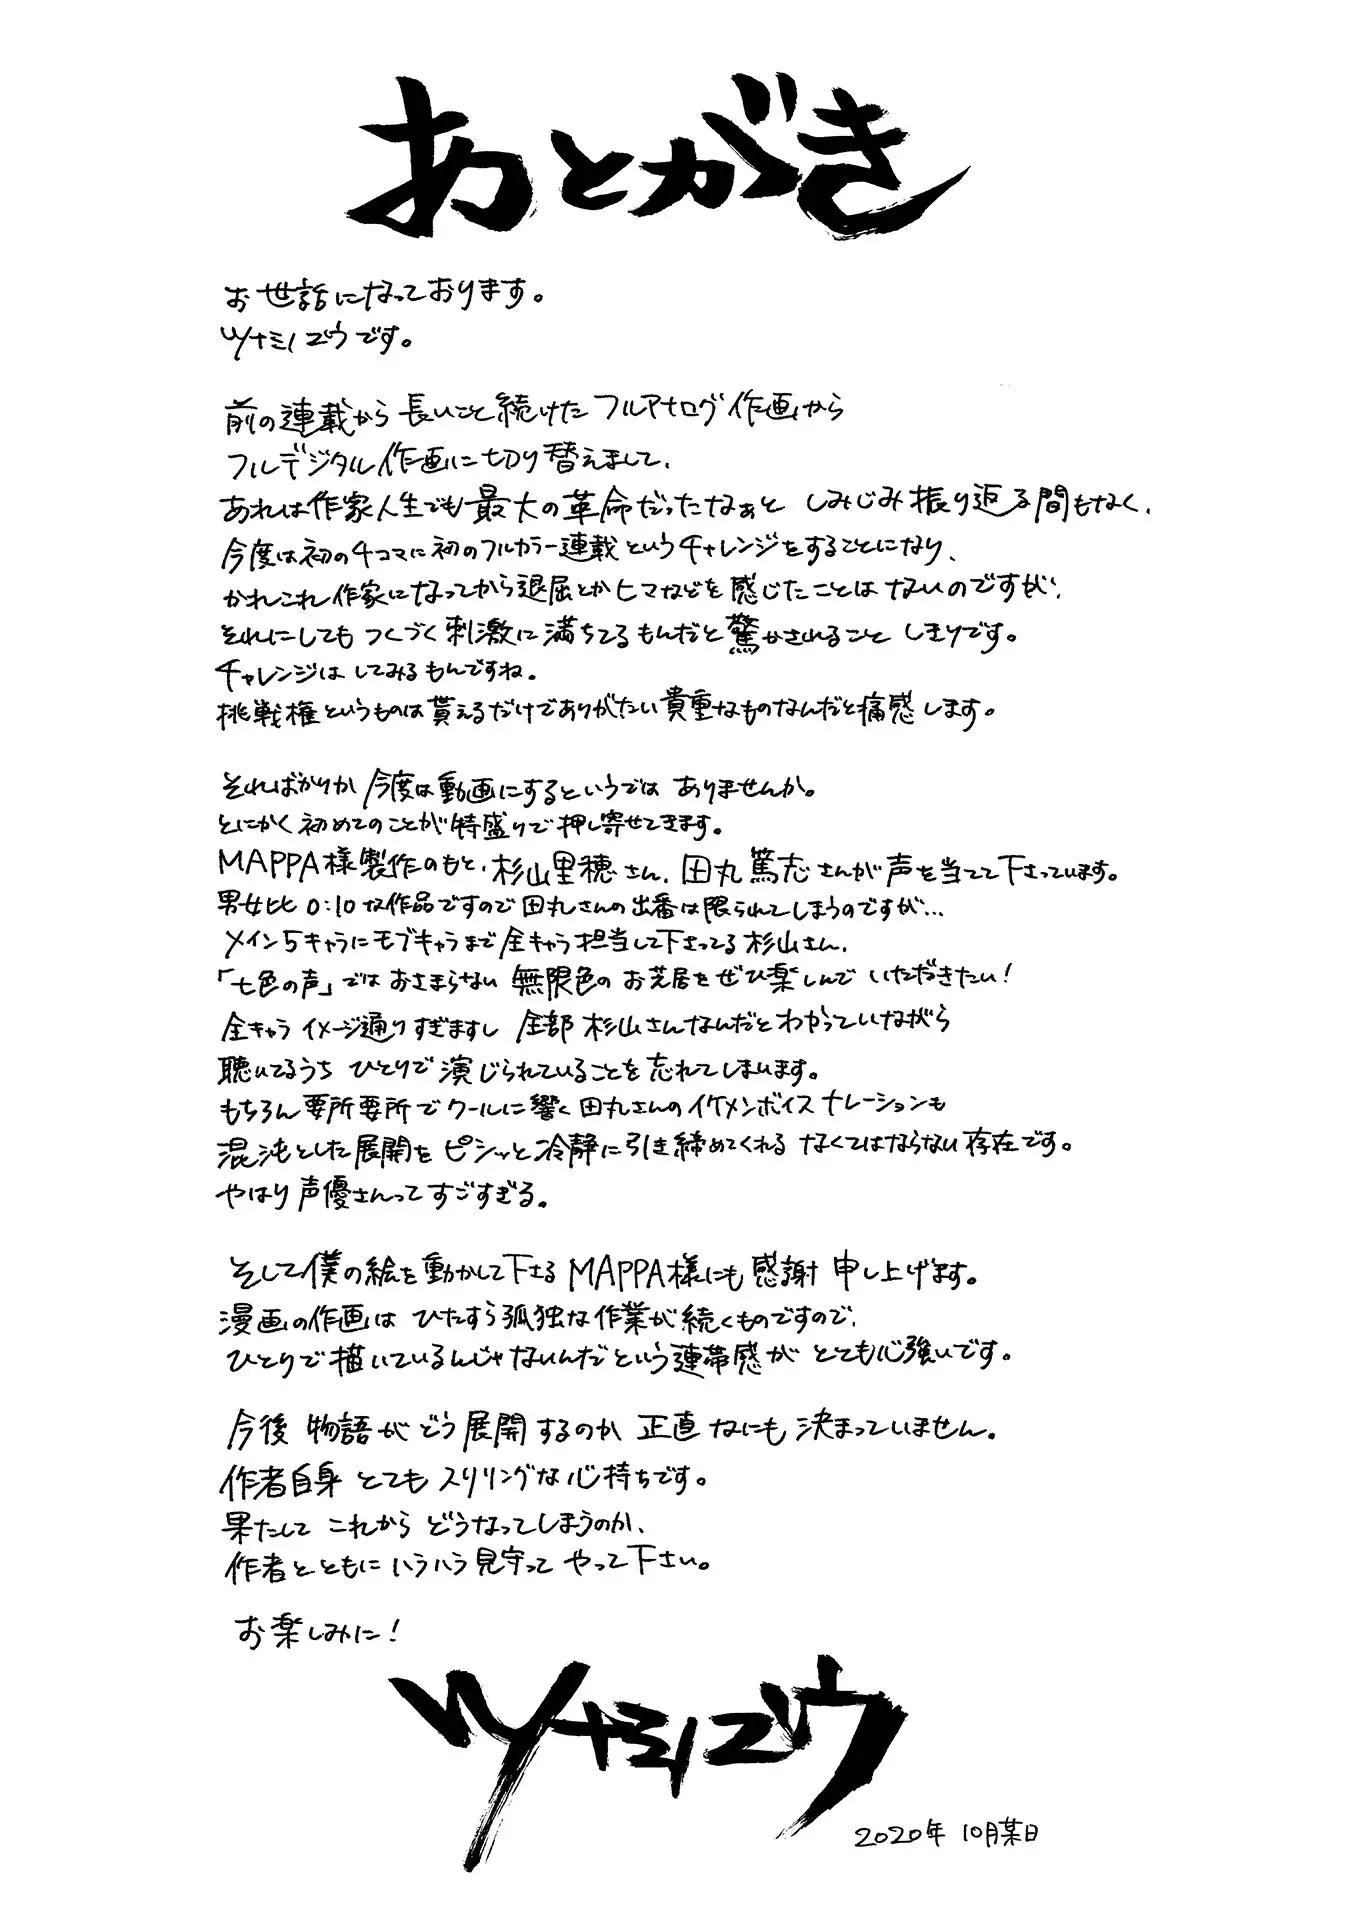 あとがき
お世話になっております。
ツナミノユウです。
前の連載から長いこと続けたフルアナログ作画から
フルデジタル作画に切り替えまして、
あれは作家人生でも最大の革命だったなぁと しみじみ振り返る間もなく、
今度は初の4コマに初のフルカラー連載というチャレンジをすることになり、
かれこれ作家になってから退屈とかヒマなどを感じたことはないのですが、
それにしてもつくづく刺激に満ちてるもんだと驚かされること しきりです。
チャレンジはしてみるもんですね。
挑戦権というものは貰えるだけでありがたい貴重なものなんだと痛感します。
そればかりか今度は動画にするというではありませんか。
とにかく初めてのことが特盛りで押し寄せてきます。
MAPPA様製作のもと、杉山里穂さん、田丸篤志さんが声を当てて下さっています。
男女比0:10な作品ですので田丸さんの出番は限られてしまうのですが…
メイン5キャラにモブキャラまで全キャラ担当して下さってる杉山さん、
「七色の声」ではおさまらない 無限色のお芝居をぜひ楽しんで いただきたい!
全キャライメージ通りすぎますし 全部杉山さんなんだとわかっていながら
聴いてるうち ひとりで演じられていることを忘れてしまいます。
もちろん要所要所でクールに響く田丸さんのイケメンボイス ナレーションも
混沌とした展開をピシッと冷静に引き締めてくれる なくてはならない存在です。
やはり声優さんってすごすぎる。
そして僕の絵を動かして下さるMAPPA様にも感謝申し上げます。
漫画の作画は ひたすら孤独な作業が続くものですので、
ひとりで描いているんじゃないんだという連帯感が とても心強いです。
今後 物語がどう展開するのか 正直なにも決まっていません。
作者自身 とてもスリリングな心持ちです。
果たして これから どうなってしまうのか、
作者とともにハラハラ見守って やって下さい。
お楽しみに!
ツナミノユウ
2020年 10月某日